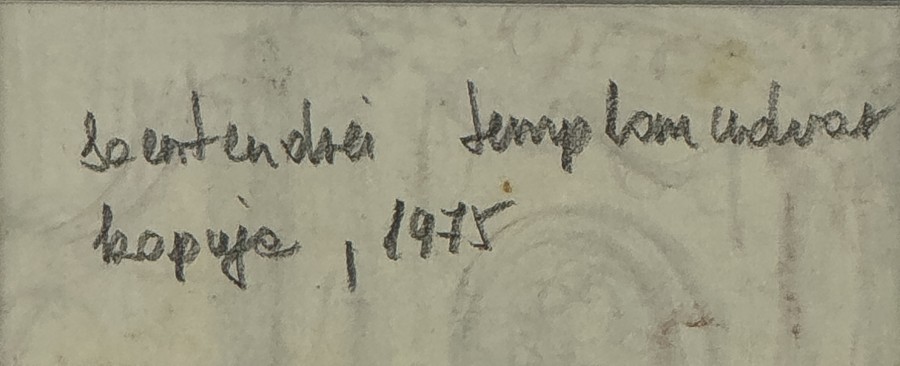 szentendrei templom udvar
kapuja, 1975